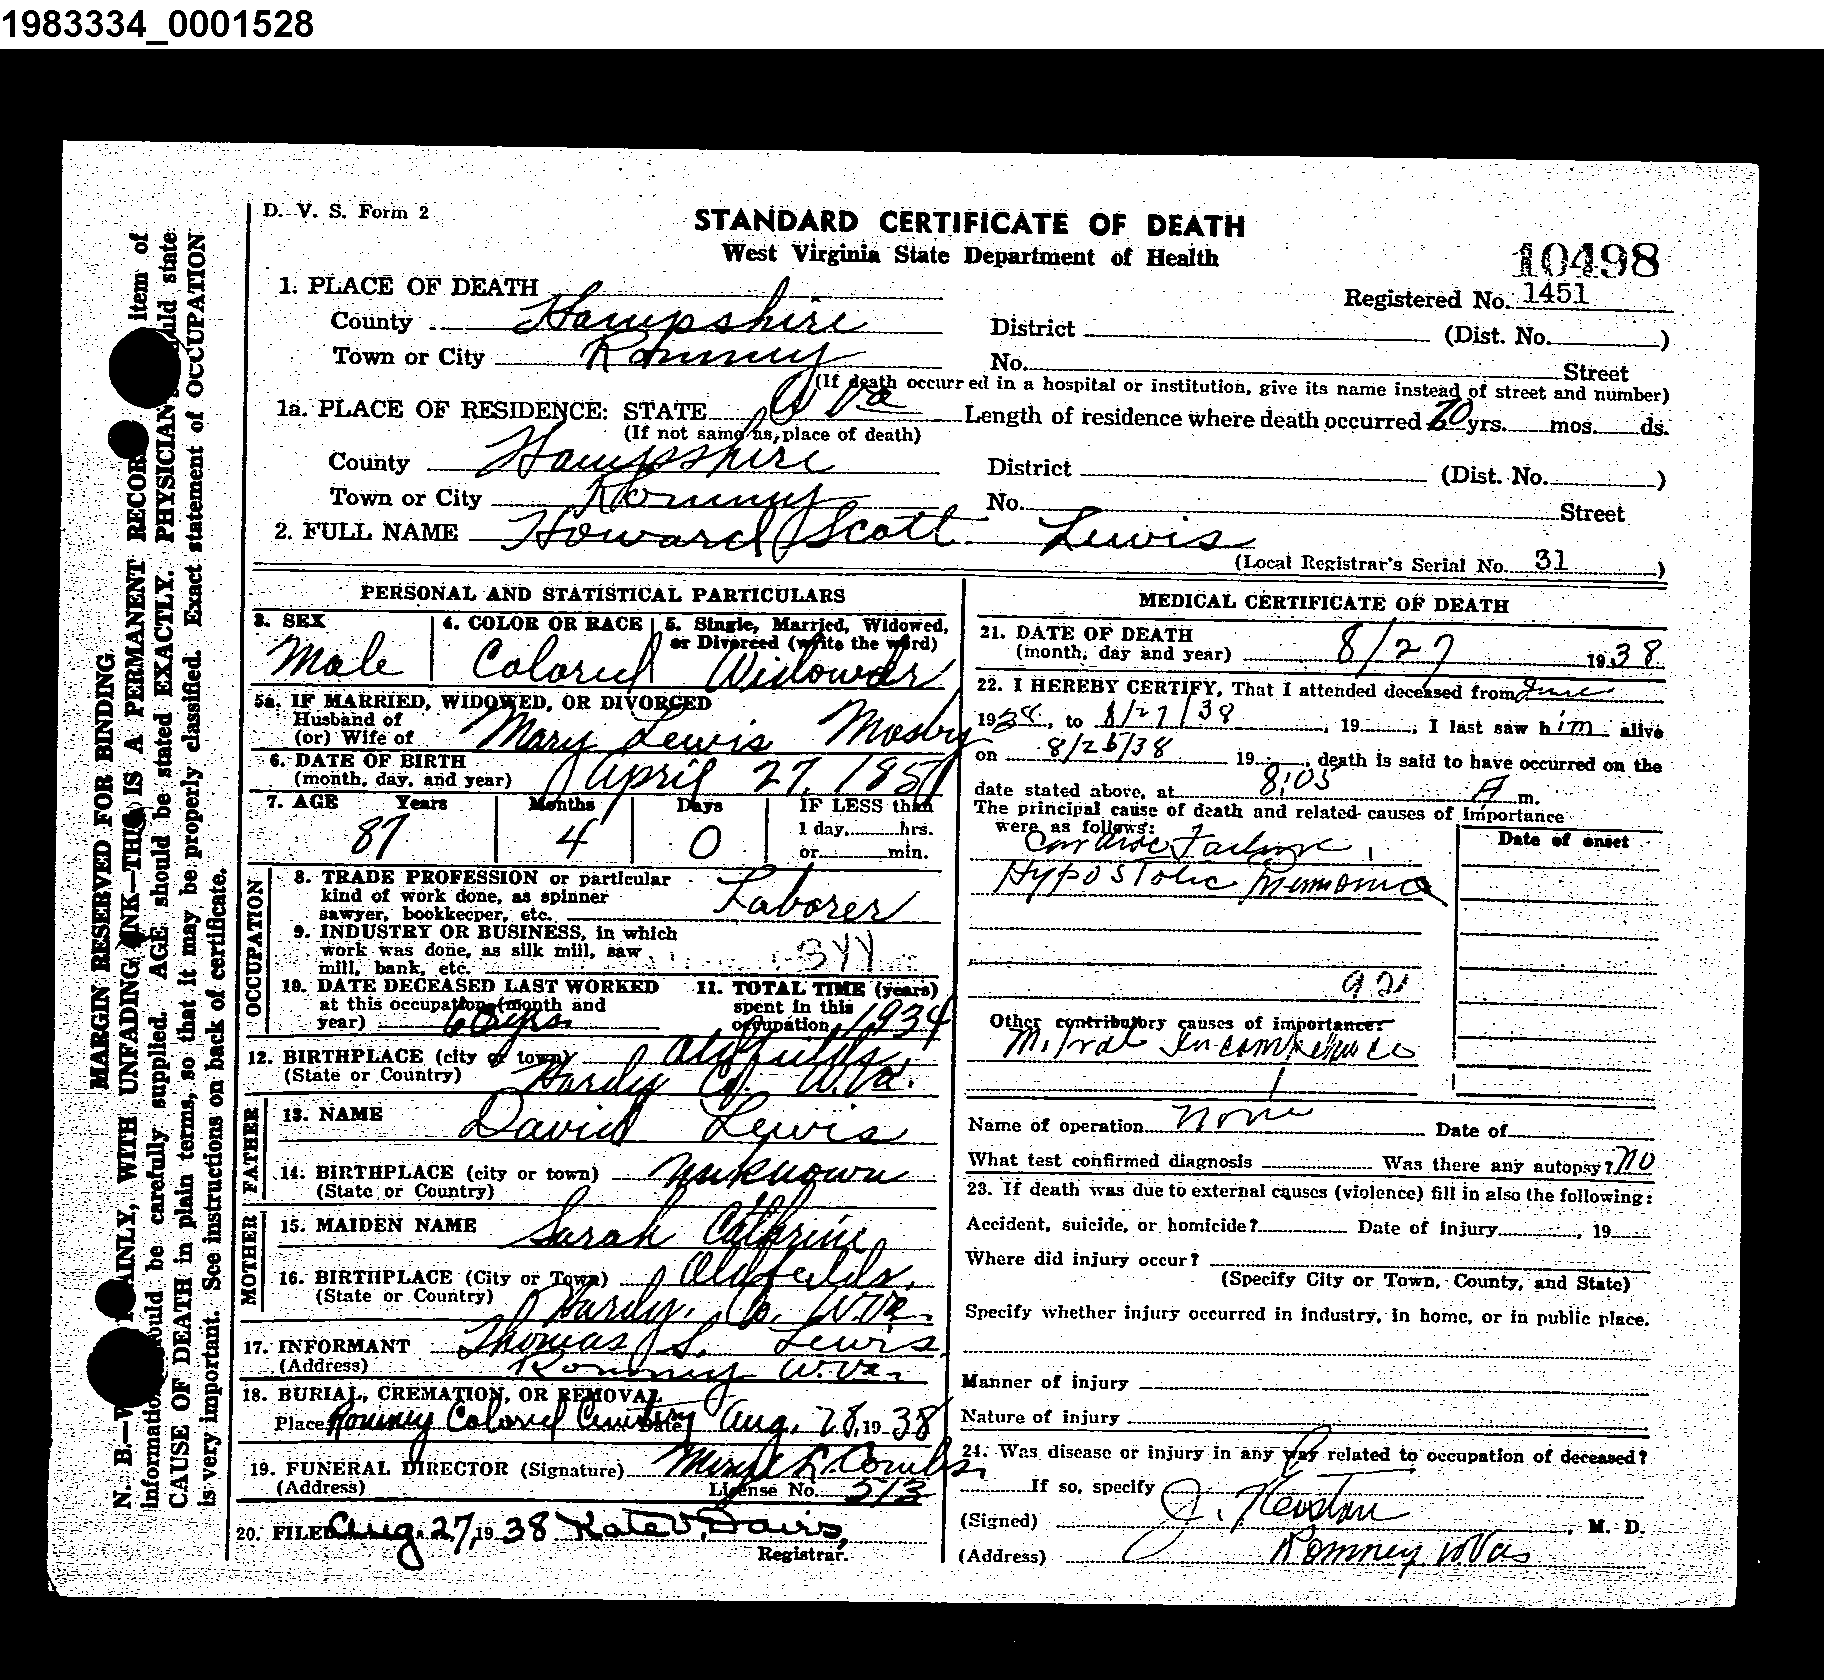 1983334_0001528
D. V. S. Form 2
STANDARD CERTIFICATE OF DEATH
West Virginia State Department of Health
10498
1. PLACE OF DEATH
Registered No. 1451
County Hampshire
District (Dist. No. )
Town or City Romney
No. Street
(If death occurred in a hospital or institution, give its name instead of street and number)
1a. PLACE OF RESIDENCE: STATE W Va
Length of residence where death occurred 70 yrs. mos. ds.
(If not same as place of death)
County Hampshire
District (Dist. No. )
Town or City Romney
No. Street
2. FULL NAME Howard Scott Lewis
(Local Registrar's Serial No. 31 )
PERSONAL AND STATISTICAL PARTICULARS
3. SEX
Male
4. COLOR OR RACE
Colored
5. Single, Married, Widowed,
or Divorced (write the word)
Widower
5a. IF MARRIED, WIDOWED, OR DIVORCED
Husband of
(or) Wife of Mary Lewis Mosby
6. DATE OF BIRTH
(month, day, and year) April 27, 1851
7. AGE Years Months Days
87 4 0
IF LESS than
1 day, hrs.
or min.
OCCUPATION
8. TRADE PROFESSION or particular
kind of work done, as spinner
sawyer, bookkeeper, etc. Laborer
9. INDUSTRY OR BUSINESS, in which
work was done, as silk mill, saw
mill, bank, etc.
10. DATE DECEASED LAST WORKED
at this occupation (month and
year)
11. TOTAL TIME (years)
spent in this
occupation 1934
12. BIRTHPLACE (city or town) Oldfields,
(State or Country) Hardy Co. W.Va.
FATHER
13. NAME David Lewis
14. BIRTHPLACE (city or town) Unknown
(State or Country)
MOTHER
15. MAIDEN NAME Sarah Catherine
16. BIRTHPLACE (City or Town) Oldfields,
(State or Country) Hardy, Co. W.Va.
17. INFORMANT Thomas S. Lewis
(Address) Romney W.Va.
18. BURIAL, CREMATION, OR REMOVAL
Place Romney Colored Cemetery Date Aug. 28, 19 38
19. FUNERAL DIRECTOR (Signature) Combs
(Address) License No. 513
20. FILED Aug 27, 19 38 Kate V. Davis,
Registrar.
MEDICAL CERTIFICATE OF DEATH
21. DATE OF DEATH
(month, day and year) 8/27 19 38
22. I HEREBY CERTIFY, That I attended deceased from June
1938, to 8/27/38, 19 ; I last saw him alive
on 8/26/38 19 , death is said to have occurred on the
date stated above, at 8:05 A m.
The principal cause of death and related causes of Importance
were as follows:
Date of onset
Cardiac Failure,
Hypostatic Pneumonia
Other contributory causes of importance:
Mitral Incompetence
Name of operation none Date of
What test confirmed diagnosis Was there any autopsy? no
23. If death was due to external causes (violence) fill in also the following:
Accident, suicide, or homicide? Date of injury , 19
Where did injury occur?
(Specify City or Town, County, and State)
Specify whether injury occurred in industry, in home, or in public place.
Manner of injury
Nature of injury
24. Was disease or injury in any way related to occupation of deceased?
If so, specify
(Signed) M. D.
(Address) Romney W Va
MARGIN RESERVED FOR BINDING
item of
information should be carefully supplied. AGE should be stated EXACTLY. PHYSICIANS should state
CAUSE OF DEATH in plain terms, so that it may be properly classified. Exact statement of OCCUPATION
is very important. See instructions on back of certificate.